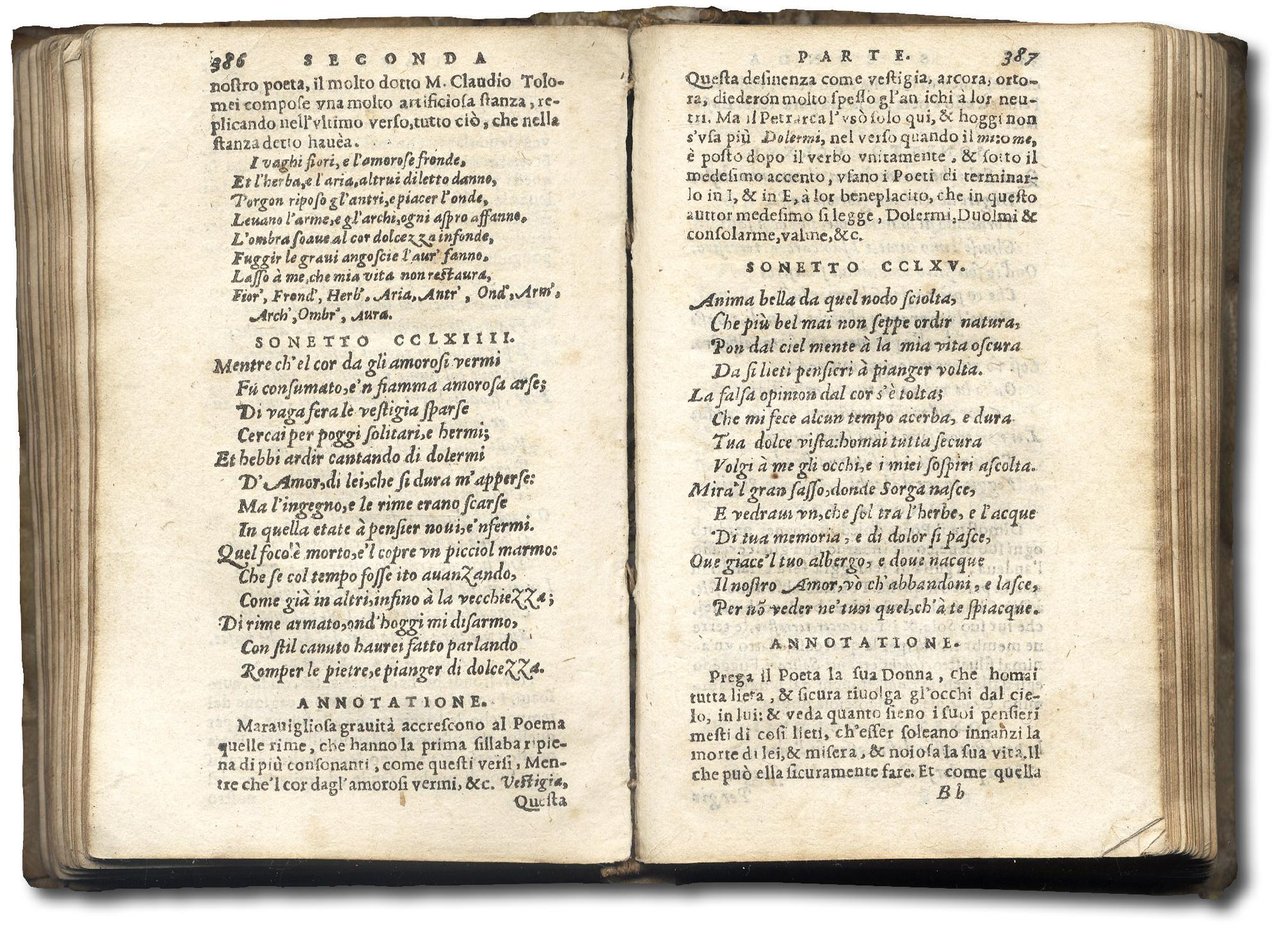 386 SECONDA
nostro poeta, il molto dotto M. Claudio Tolo-
mei compose vna molto artificiosa stanza, re-
plicando nell'vltimo verso, tutto ciò, che nella
stanza detto hauèa.
I vaghi fiori, e l'amorose fronde,
Et l'herba, e l'aria, altrui diletto danno,
Porgon riposo gl'antri, e piacer l'onde,
Leuano l'arme, e gl'archi, ogni aspro affanno,
L'ombra soaue al cor dolcezza infonde,
Fuggir le graui angoscie l'aur' fanno,
Lasso à me, che mia vita non restaura,
Fior', Frond', Herb', Aria, Antr', Ond', Arm',
Arch', Ombr', Aura.
SONETTO CCLXIIII.
Mentre ch'el cor da gli amorosi vermi
Fú consumato, e'n fiamma amorosa arse;
Di vaga fera le vestigia sparse
Cercai per poggi solitari, e hermi;
Et hebbi ardir cantando di dolermi
D'Amor, di lei, che si dura m'apperse:
Ma l'ingegno, e le rime erano scarse
In quella etate à pensier noui, e'nfermi.
Quel foco'è morto, e'l copre vn picciol marmo:
Che se col tempo fosse ito auanzando,
Come già in altri, infino à la vecchiezza;
Di rime armato, ond'hoggi mi disarmo,
Con stil canuto haurei fatto parlando
Romper le pietre, e pianger di dolcezza.
ANNOTATIONE.
Marauigliosa grauità accrescono al Poema
quelle rime, che hanno la prima sillaba ripie-
na di più consonanti, come questi versi, Men-
tre che'l cor dagl'amorosi vermi, &c. Vestigia,
Questa
PARTE. 387
Questa desinenza come vestigia, arcora, orto-
ra, diederon molto spesso gl'an ichi à lor neu-
tri. Ma il Petrarca l'vsò solo qui, & hoggi non
s'vsa più Dolermi, nel verso quando il mi: o me,
è posto dopo il verbo vnitamente, & sotto il
medesimo accento, vsano i Poeti di terminar-
lo in I, & in E, à lor beneplacito, che in questo
auttor medesimo si legge, Dolermi, Duolmi &
consolarme, valme, &c.
SONETTO CCLXV.
Anima bella da quel nodo sciolta,
Che più bel mai non seppe ordir natura,
Pon dal ciel mente à la mia vita oscura
Da si lieti pensieri à pianger volta.
La falsa opinion dal cor s'è tolta;
Che mi fece alcun tempo acerba, e dura
Tua dolce vista: homai tutta secura
Volgi à me gli occhi, e i miei sospiri ascolta.
Mira'l gran sasso, donde Sorga nasce,
E vedraui vn, che sol tra l'herbe, e l'acque
Di tua memoria, e di dolor si pasce,
Oue giace'l tuo albergo, e doue nacque
Il nostro Amor, vò ch'abbandoni, e lasce,
Per nõ veder ne' tuoi quel, ch'à te spiacque.
ANNOTATIONE.
Prega il Poeta la sua Donna, che homai
tutta lieta, & sicura riuolga gl'occhi dal cie-
lo, in lui: & veda quanto sieno i suoi pensieri
mesti di così lieti, ch'esser soleano innanzi la
morte di lei, & misera, & noiosa la sua vita. Il
che può ella sicuramente fare. Et come quella
B b